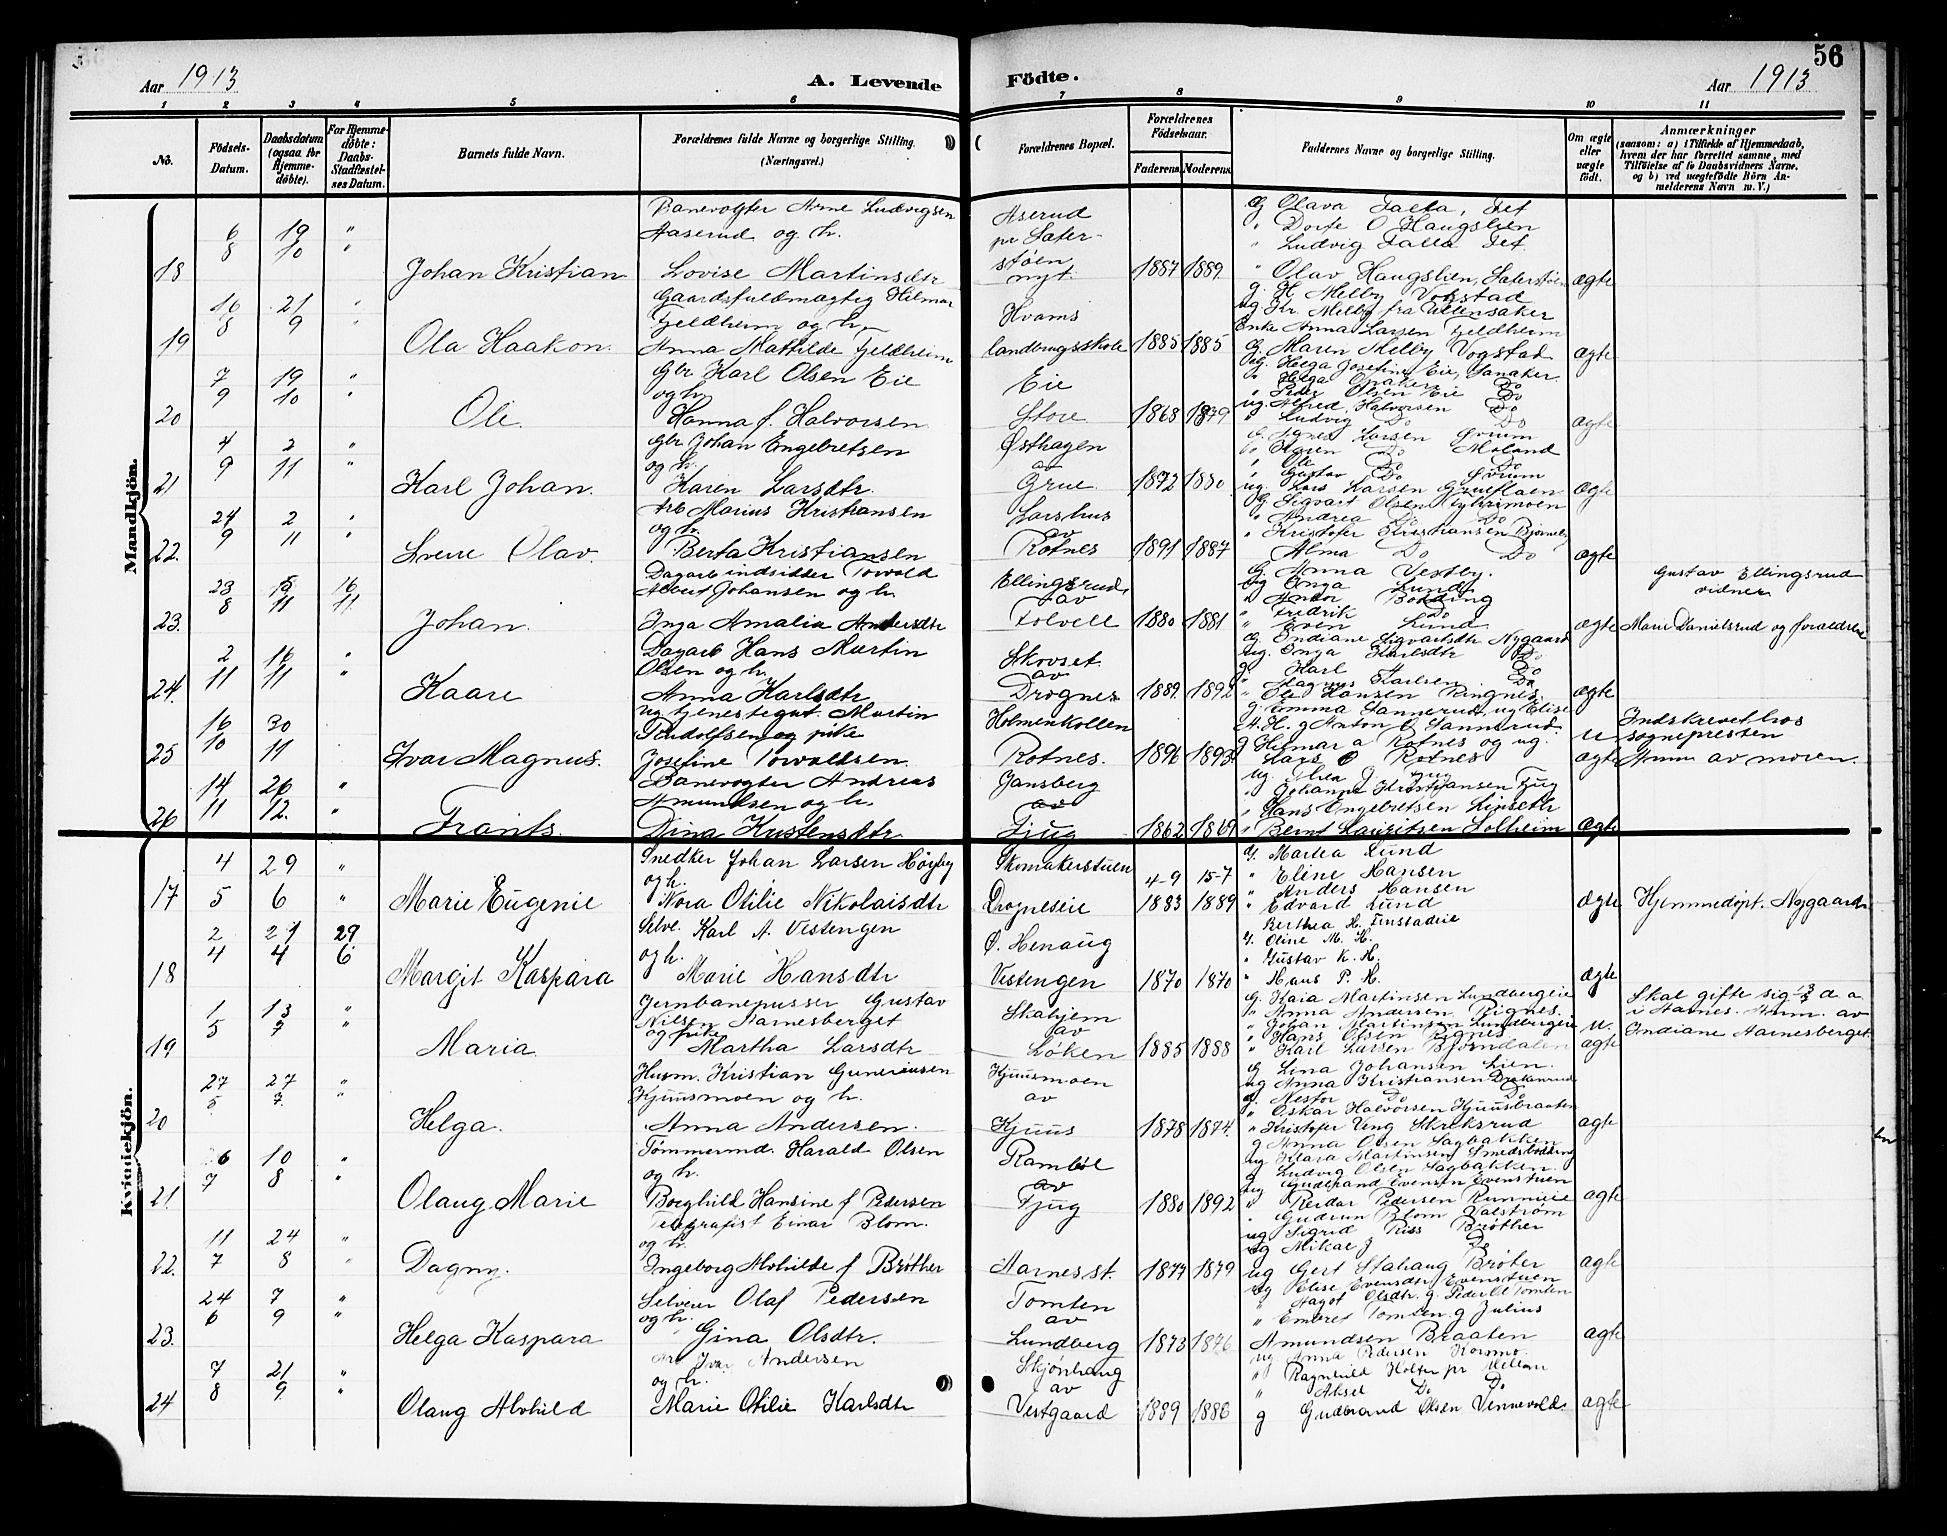 56
Aar 1913
A. Levende Födte.
Aar 1913
1 2 3 4 5 6 7 8 9 10 11
No.
Födsels-Datum.
Daabsdatum (ogsaa for Hjemme-døbte).
For Hjemme-döbte: Daabs-Stadfæstel-ses Datum.
Barnets fulde Navn.
Forældrenes fulde Navne og borgerlige Stilling. (Næringsvei.)
Forældrenes Bopæl.
Forældrenes Födselsaar.
Faderens Moderens
Faddernes Navne og borgerlige Stilling.
Om ægte eller uægte födt.
Anmærkninger
(saasom: a) i Tilfælde af Hjemmedaab,
hvem der har forrettet samme, med
Tilföielse af to Daabsvidners Navne,
og b) ved uægtefödte Börn An-
melderens Navn m. V.)
Mandkjön.
18 6/8 19/10 " Johan Kristian
Banevogter Arne Ludvigsen
Aaserud og h.
Lovise Martinsdtr
Aserud
pr Sæter-
støen
nyt.
1887 1889
g Olava Falla, Fet
" Dorte O Haugslien
" Ludvig Falla Fet
" Olav Haugslien, Sæterstøen
ægte
19 10/8 21/9 " Ola Haakon.
Gaardsfuldmægtig Hilmar
Fjeldheim og h.
Anna Mathilde Fjeldheim
Hvams
landbrugsskole
1885 1885
g. H. Melby Vogstad
ug Kr. Melby fra Ullensaker
Enke Anna Larsen Fjeldheim
g. Maren Melby Vogstad
ægte
20 7/9 19/10 " Ole.
Gbr Karl Olsen Eie
og h.
Hanna f. Halvorsen
Eie
Store
1868 1879
ug. Helga Josefine Eie, Sanaker
" Peder Olsen Eie Do
ug. Alfred Halvorsen Do
" Ludvig Do Do
ægte
21 4/9 2/11 " Karl Johan.
Gbr Johan Engebretsen
og h.
Karen Larsdtr.
Østhagen
av
Grue.
1872 1880
g. Agnes Larsen Grum
" Karen Do Moland
" Ole Do Do
" Gustav Do
ug. Lars Larsen
ægte
22. 24/9 2/11 " Sverre Olav.
Arb Marius Kristiansen
og h.
Berta Kristiansen
Larshus
av
Rotnes
1891 1887
g Sigvart Olsen
" Andrea Do Do
" Kristofer Kristiansen
Alma Do Do
ægte
23. 23/8 15/11 16/11 Johan.
Dagarb indsidder Torvald
Albert Johansen og h.
Inga Amalia Andersdtr
Ellingsrud,
av
Folvell
1880 1881
g. Anna Vestby.
ug Inga Lund
" Anton Bodding
" Fredrik Do
" Even Lund
ægte
Gustav Ellingsrud
vidner
Marie Danielsrud og forældrene
24. 2/11 16/11 " Kaare
Dagarb Hans Martin
Olsen og h.
Anna Karlsdtr
Skovset.
av
Drognes
1889 1892
g. Indiane Sigvartsdtr Nygaard
ug. Inga Karlsdtr Do
g. Karl Do
" Magnus Karlsen Do
" Oluf Hansen Ringnes.
ægte
25 16/10 30/11 Ivar Magnus.
ug tjenestegut. Martin
Rudolfsen og pike
Josefine Torvaldsen.
Holmenkollen
Rotnes.
1896 1893
g. Emma Sannerud, ug Elise
A. H. g Anton O Sannerud
g Hilmar a Rotnes og ug.
Lars O Rotnes
u ægte
Indskrevet hos
sognepresten
Anm. av moren.
26 14/11 26/12. " Frants.
Banevogter Andreas
Amundsen og h.
Dina Kristensdtr
Jansberg
av
Fjug
1862 1869
ug Thea J Fjug
" Johanne Kristiansen Fjug
" Hans Engebretsen
" Bernt Lauritsen Solheim
ægte
Kvindekjön.
17 4/5 29/6 " Marie Eugenie
Snedker Johan Larsen Høyby
og h.
Nora Otilie Nikolaisdtr
Skomakerstuen
Drogneseie
4-9 1883 15-7 1889
g. Martea Lund
" Eline Hansen
" Anders Hansen
" Edvard Lund
ægte
Hjemmedøpt. Nygaard
18 2/4 27/4 29/6 Margit Kaspara
Selve. Karl A. Vestengen
og h.
Marie Hansdtr
Ø. Henaug
Vestengen
1870 1870
Berthea H. Finstadeie
g. Oline M. H.
" Gustav K. H.
" Hans P. H.
ægte
19 1/5 13/7 " Maria
Jernbanepusser Gustav
Nilsen Aarnesberget
og pike
Martha Larsdtr
Skahjem
av
Løken
1885 1888
g. Kaia Martinsen Lundbergeie
" Anna Andersen Rignes.
" Johan Martinsen Lundbergeie
" Hans Olsen Rignes
" Karl Larsen Bjørndalen
u. ægte
Skal gifte sig 13/7 d. a.
i Aarnes. Anm. av
Indiane Aarnesberget.
20 27/5 27/7. " Helga.
Husm. Kristian Gunerussen
Kjuusmoen og h.
Anna Andersen.
Kjuusmoen
av
Kjuus
1878 1874.
g Lina Johansen Lien.
ug Anna Kristiansen
g. Nestor Do Do
" Oskar Halvorsen Kjuusbraaten
" Kristofer Veng Skriksrud
ægte
21. 6/7 10/8 " Olaug Marie
Tømmermd. Harald Olsen
og h.
Borghild Hansine f Pedersen
Rambøl
av
Fjug
1880 1892
g Anna Olsen Sagbakken
ug Klara Martinsen Smedsbødding
g Ludvig Olsen Sagbakken.
ug Gudbrand Evensen Evenstuen
" Reidar Pedersen Runnieie
ægte
22. 11/7 24/8 " Dagny.
Telegrafist Einar Blom.
og h.
Ingeborg Alvhilde f Brøther
Aarnes st.
1877 1879
" Gudrun Blom Valstrøm
ug Sigrid Riis Brøther
ug Mikael J Do
ug Gert Stahaug Brøter
ægte
23. 24/6 7/9 " Helga Kaspara
Selveier Olaf Pedersen
og h.
Gina Olsdtr.
Tomten
av
Lundberg
1873 1876
ug Elise Evensdtr Evenstuen
" Aagot Olsdtr. g. Peder O Tomten
" Embret Tomten g Julius
Amundsen Braaten
ægte
24 7/8 21/9 " Olaug Alvhild
Arb Ivar Andersen
og h.
Marie Otilie Karlsdtr
Skjønhaug
av
Vestgaard
1889 1888
ug Anna Pedersen Kormo.
" Ragnhild Holter pr Mellom
" Aksel Do Do
g Gudbrand Olsen Vennevold.
ægte